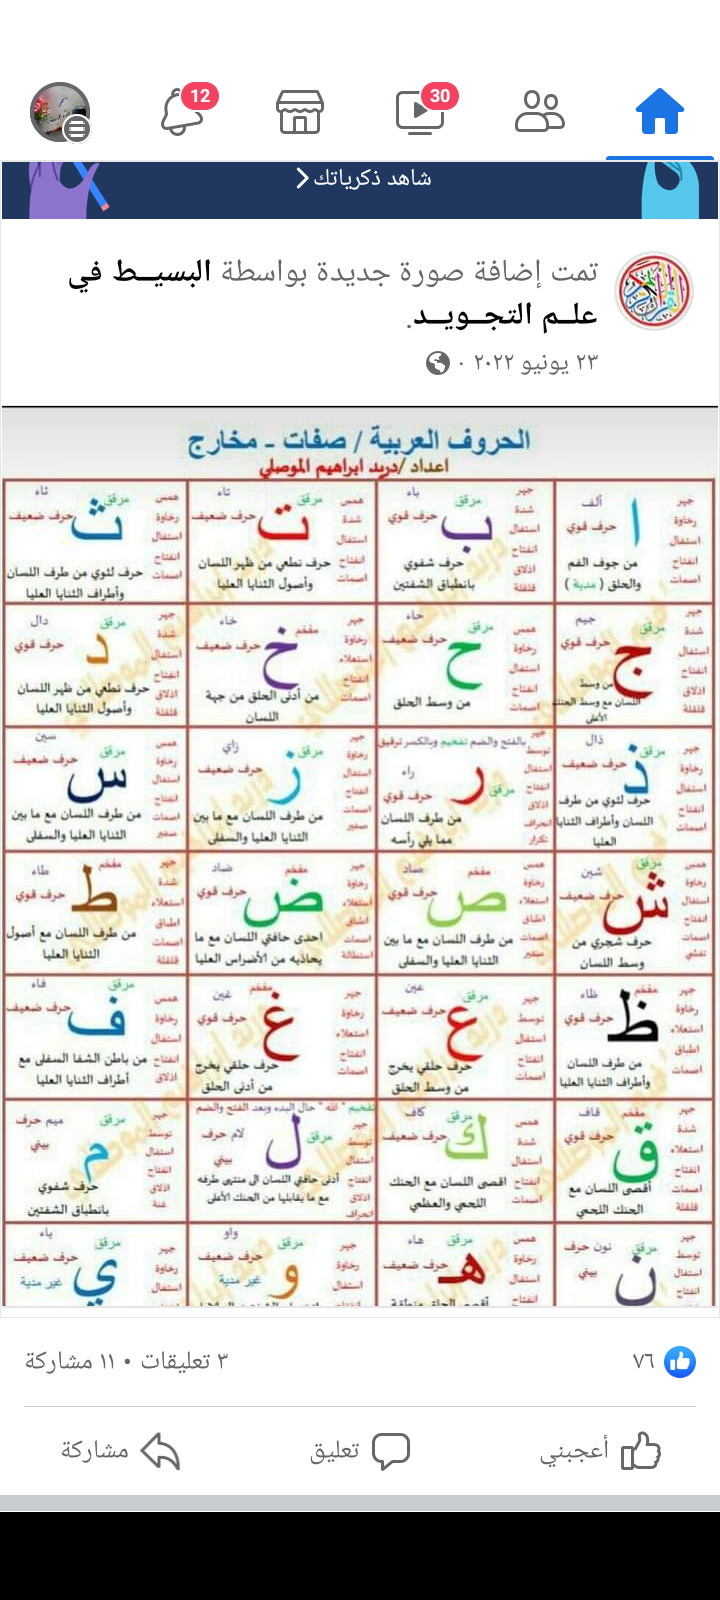 12
30
شاهد ذكرياتك
تمت إضافة صورة جديدة بواسطة البسيـــط في
علــم التجــويــد.
٢٣ يونيو ٢٠٢٢
الحروف العربية / صفات - مخارج
اعداد / دريد ابراهيم الموصلي
جهر
رخاوة
استفال
انفتاح
اصمات
ألف
ا
حرف قوي
من جوف الفم
والحلق ( مدية )
جهر
شدة
استفال
انفتاح
اذلاق
قلقلة
باء
مرقق
ب
حرف قوي
حرف شفوي
بانطباق الشفتين
همس
شدة
استفال
انفتاح
اصمات
تاء
مرقق
ت
حرف ضعيف
حرف نطعي من ظهر اللسان
وأصول الثنايا العليا
همس
رخاوة
استفال
انفتاح
اصمات
ثاء
مرقق
ث
حرف ضعيف
حرف لثوي من طرف اللسان
وأطراف الثنايا العليا
جهر
شدة
استفال
انفتاح
اذلاق
قلقلة
جيم
مرقق
ج
حرف قوي
من وسط
اللسان مع وسط الحنك
الأعلى
همس
رخاوة
استفال
انفتاح
اصمات
حاء
مرقق
ح
حرف ضعيف
من وسط الحلق
جهر
رخاوة
استعلاء
انفتاح
اصمات
خاء
مفخم
خ
حرف ضعيف
من أدنى الحلق من جهة
اللسان
جهر
شدة
استفال
انفتاح
اذلاق
قلقلة
دال
مرقق
د
حرف قوي
حرف نطعي من ظهر اللسان
وأصول الثنايا العليا
جهر
رخاوة
استفال
انفتاح
اصمات
ذال
مرقق
ذ
حرف ضعيف
حرف لثوي من طرف
اللسان وأطراف الثنايا
العليا
بالفتح والضم تفخيم وبالكسر ترقيق
جهر
توسط
استفال
انفتاح
اذلاق
انحراف
تكرار
راء
مرقق
ر
حرف قوي
من طرف اللسان
مما يلي رأسه
جهر
رخاوة
استفال
انفتاح
اصمات
صفير
زاي
مرقق
ز
حرف ضعيف
من طرف اللسان مع ما بين
الثنايا العليا والسفلى
همس
رخاوة
استفال
انفتاح
اصمات
صفير
سين
مرقق
س
حرف ضعيف
من طرف اللسان مع ما بين
الثنايا العليا والسفلى
همس
رخاوة
استفال
انفتاح
اصمات
تفشي
شين
مرقق
ش
حرف ضعيف
حرف شجري من
وسط اللسان
همس
رخاوة
استعلاء
اطباق
اصمات
صفير
صاد
مفخم
ص
حرف قوي
من طرف اللسان مع ما بين
الثنايا العليا والسفلى
جهر
رخاوة
استعلاء
اطباق
اصمات
استطالة
ضاد
مفخم
ض
حرف قوي
احدى حافتي اللسان مع ما
يحاذيه من الأضراس العليا
جهر
شدة
استعلاء
اطباق
اصمات
قلقلة
طاء
مفخم
ط
حرف قوي
من طرف اللسان مع أصول
الثنايا العليا
جهر
رخاوة
استعلاء
اطباق
اصمات
ظاء
مفخم
ظ
حرف قوي
من طرف اللسان
وأطراف الثنايا العليا
جهر
توسط
استفال
انفتاح
اصمات
عين
مرقق
ع
حرف ضعيف
حرف حلقي يخرج
من وسط الحلق
جهر
رخاوة
استعلاء
انفتاح
اصمات
غين
مفخم
غ
حرف قوي
حرف حلقي يخرج
من أدنى الحلق
همس
رخاوة
استفال
انفتاح
اذلاق
فاء
مرقق
ف
حرف ضعيف
من باطن الشفا السفلى مع
أطراف الثنايا العليا
جهر
شدة
استعلاء
انفتاح
اصمات
قلقلة
قاف
مفخم
ق
حرف قوي
أقصى اللسان مع
الحنك اللحمي
همس
شدة
استفال
انفتاح
اصمات
كاف
مرقق
ك
حرف ضعيف
اقصى اللسان مع الحنك
اللحمي والعظمي
تفخيم " لله " حال البدء وبعد الفتح والضم
جهر
توسط
استفال
انفتاح
اذلاق
انحراف
لام حرف
بيني
مرقق
ل
أدنى حافتي اللسان الى منتهى طرفه
مع ما يقابلها من الحنك الأعلى
جهر
توسط
استفال
انفتاح
اذلاق
غنة
ميم حرف
بيني
مرقق
م
حرف شفوي
بانطباق الشفتين
جهر
توسط
استفال
انفتاح
نون حرف
بيني
مرقق
ن
همس
رخاوة
استفال
انفتاح
هاء
مرقق
هـ
حرف ضعيف
أقصى الحلق منطقة
جهر
رخاوة
استفال
واو
مرقق
و
حرف ضعيف
غير مدية
جهر
رخاوة
استفال
ياء
مرقق
ي
حرف ضعيف
غير مدية
٧٦
٣ تعليقات • ١١ مشاركة
أعجبني
تعليق
مشاركة